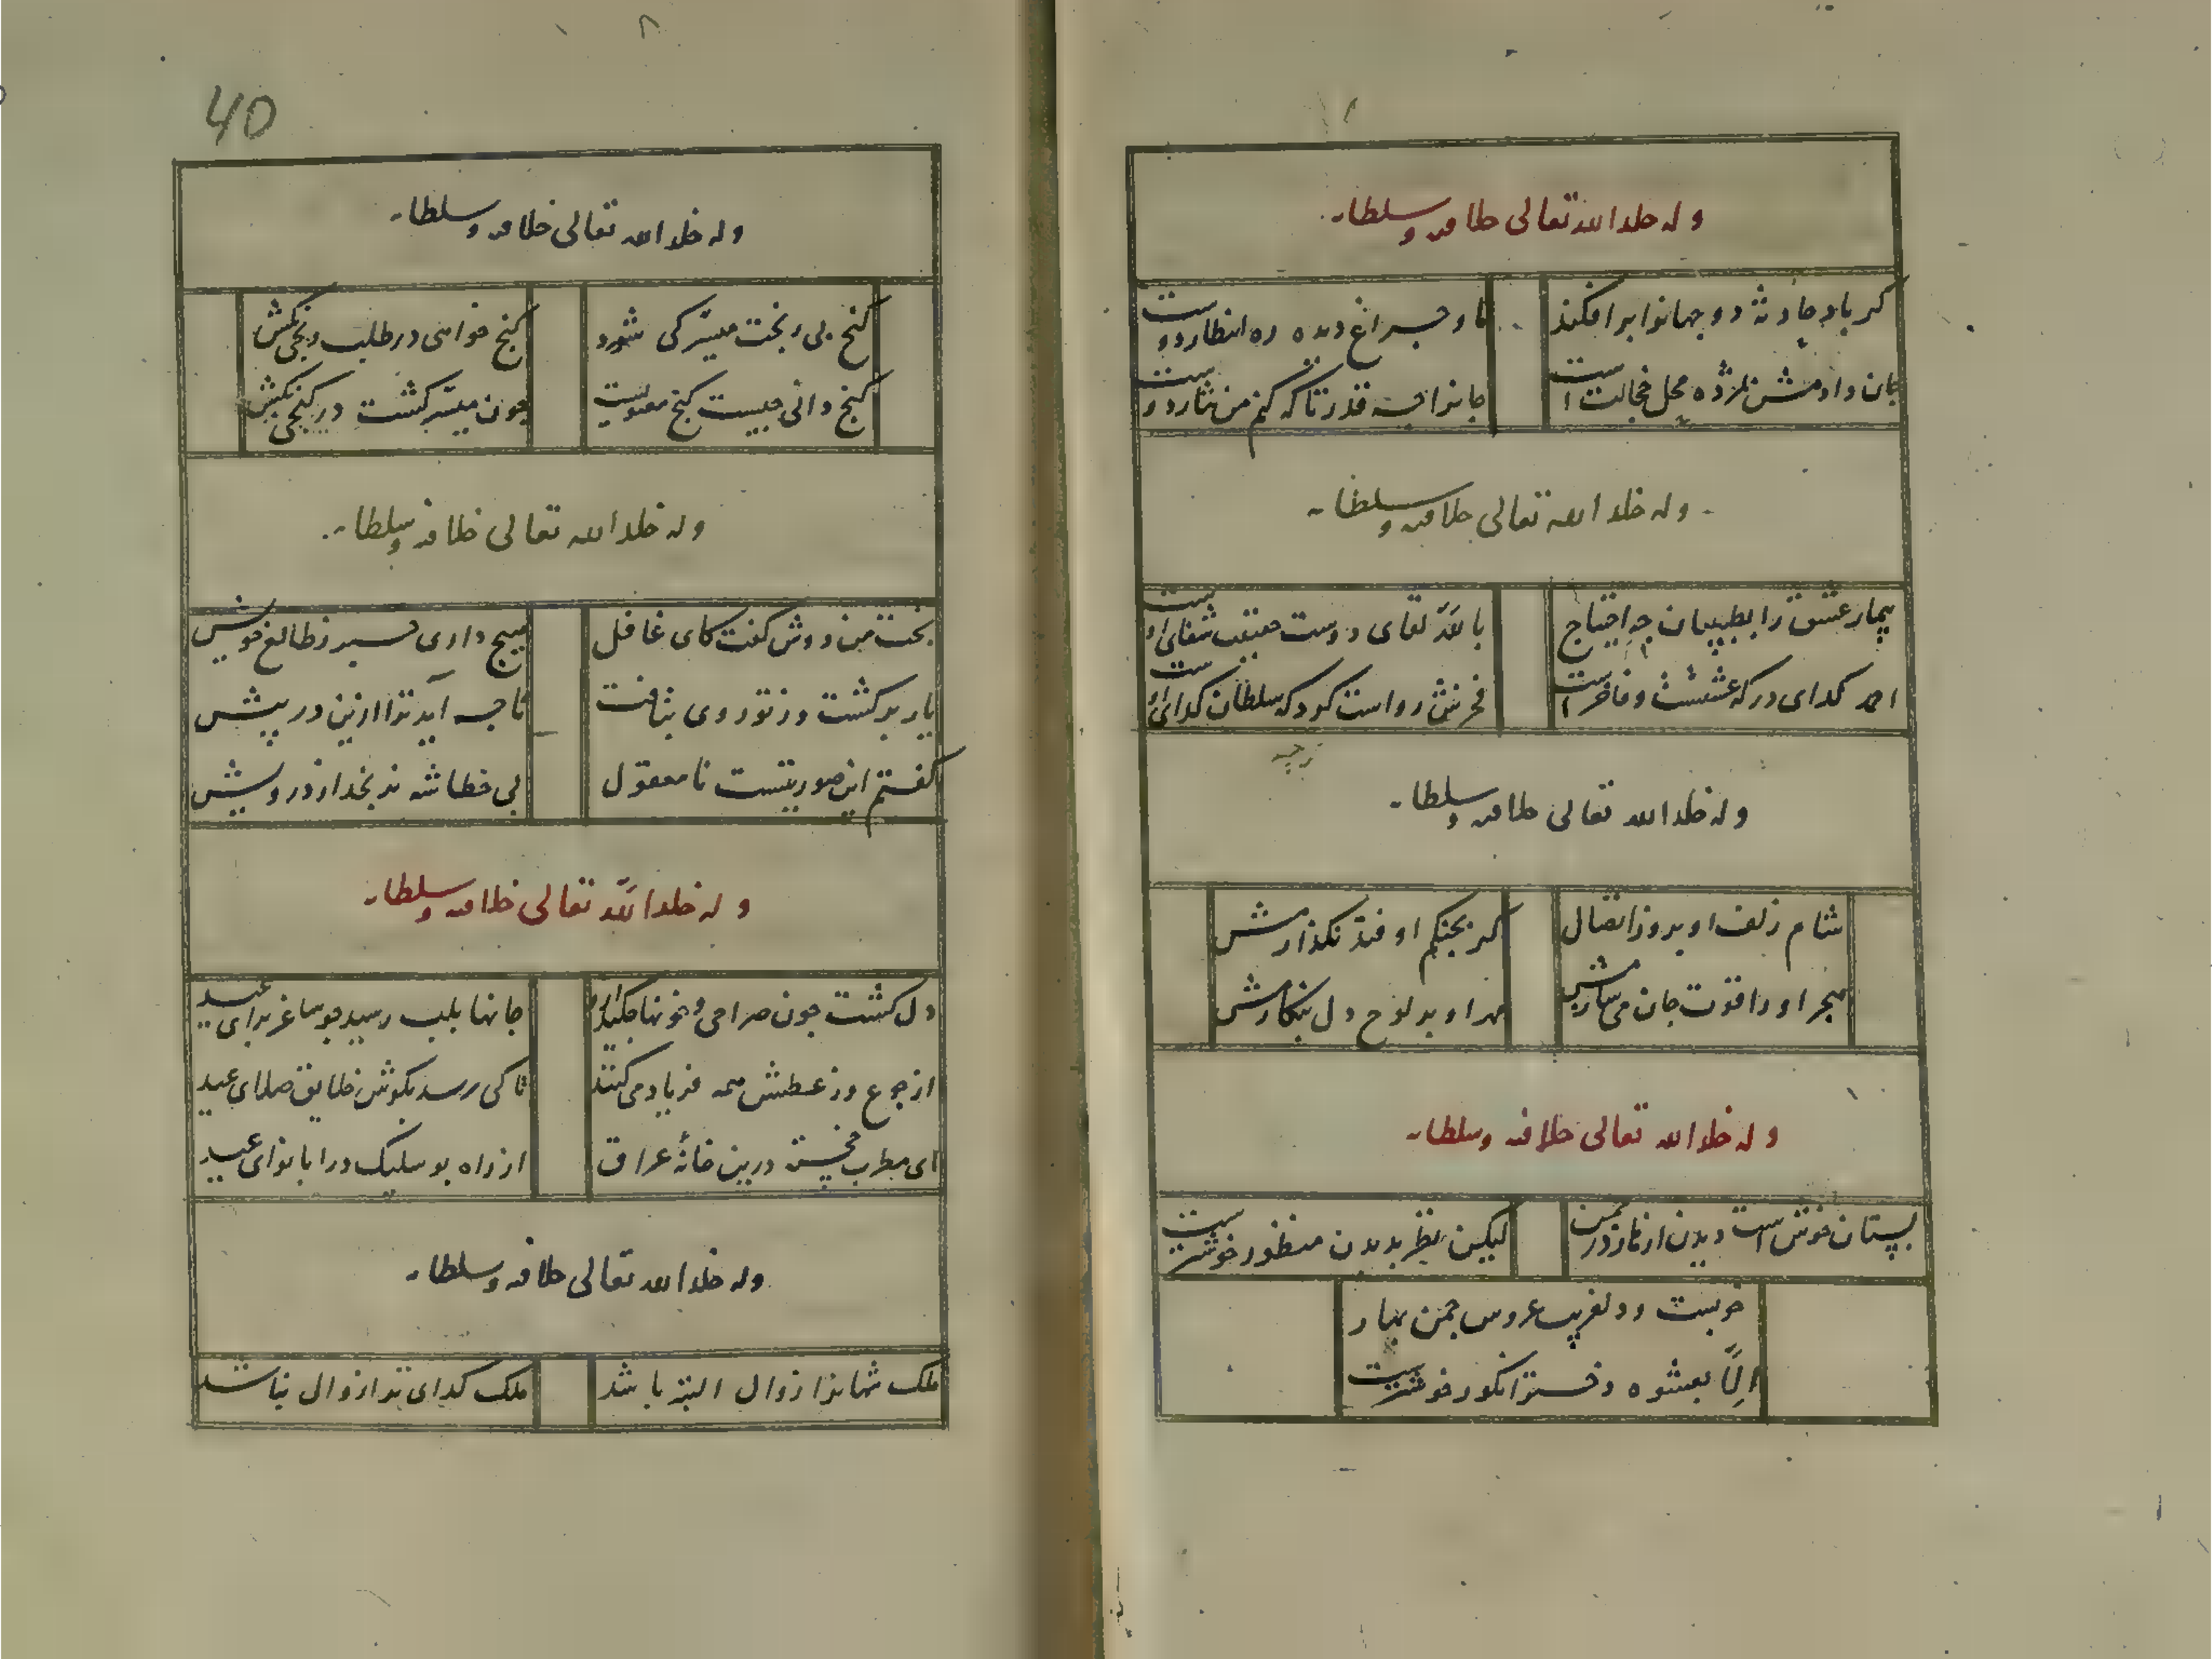 وله خلد الله تعالی خلافه و سلطانه
کر باد حادثه دو جهانرا برافکند
ما و چراغ دیده ره انتظار دوست
جان دادمش بمژده محل خجالت است
جانرا چه قدر تا که کنم من نثار دوست
وله خلد الله تعالی خلافه و سلطانه
بیمار عشق را بطبیبان چه احتیاج
بالله لقای دوست حقیقت شفای اوست
احمد کدای درکه عشقست و فاخر است
فخرش رواست کو که سلطان کدای اوست
وله خلد الله تعالی خلافه و سلطانه
شام زلف او بروز اتصال
کر بچنکم اوفتد نکذارمش
هجر او را قوت جان می سازمش
مهر او بر لوح دل بنکارمش
وله خلد الله تعالی خلافه و سلطانه
ببستان خوش است دیدن از چمن
لیکن نظر بدیدن منظور خوشترست
خوبست و دلفریب عروس چمن بهار
الّا بعشوه دختر انکور خوشترست
40
وله خلد الله تعالی خلافه و سلطانه
کنج بی رنجت میسّر کی شود
کنج خواهی در طلب رنجی بکش
کنج دانی چیست کنج معنویست
چون میسّر کشت در کنجی بکش
وله خلد الله تعالی خلافه و سلطانه
بخت من دوش کفت کای غافل
هیچ داری خبر ز طالع خویش
یار برکشت وز تو روی بتافت
تا چه آید ترا ازین در پیش
کفتم این صورتیست نا معقول
بی خطا شه نرنجد از درویش
وله خلد الله تعالی خلافه و سلطانه
دل کشت چون صراحی و خونها چکید ازو
جانها بلب رسید چو ساغر برای عید
از جوع وز عطش همه فریاد می کنند
تا کی رسد بکوش خلایق صلای عید
ای مطرب خجسته درین خانهٔ عراق
از راه بوسلیک درا با نوای عید
وله خلد الله تعالی خلافه و سلطانه
ملک شهانرا زوال البته باشد
ملک کدای ترا زوال نباشد